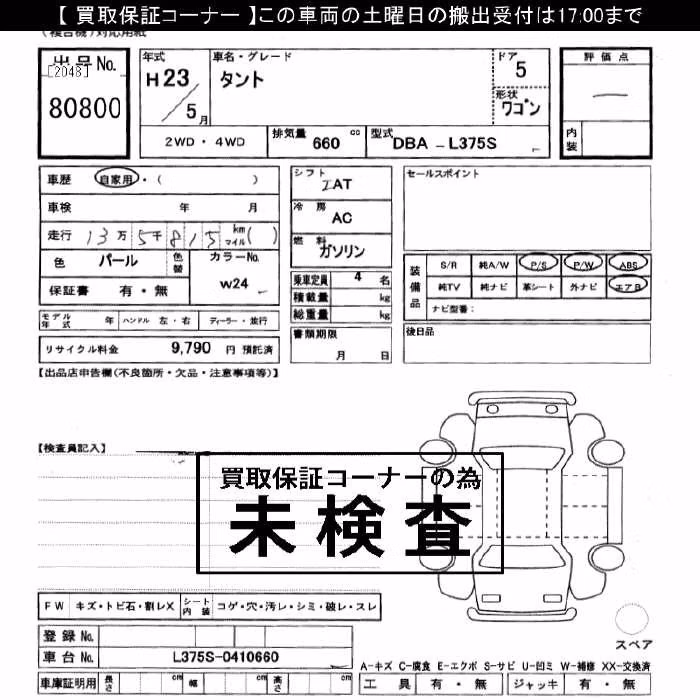 【 買取保証コーナー 】この車両の土曜日の搬出受付は17:00まで
(複合機)対応用紙
出品No.
[2048]
80800
年式
H23/5月
車名・グレード
タント
ドア
5
形状
ワゴン
評価点
―
内装
2WD・4WD
排気量 660 cc
型式 DBA - L375S
車歴 自家用・( )
車検 年 月
走行 13万5千815 km マイル( )
色 パール 色替
カラーNo. W24
保証書 有・無
シフト
IAT
冷房
AC
燃料
ガソリン
乗車定員 4 名
積載量 kg
総重量 kg
書類期限
月 日
セールスポイント
装備品
S/R 純A/W P/S P/W ABS
純TV 純ナビ 革シート 外ナビ エアB
ナビ型番:
後日品
モデル年式 年 ハンドル 左・右 ディーラー・並行
リサイクル料金 9,790 円 預託済
【出品店申告欄(不良箇所・欠品・注意事項等)】
【検査員記入】
買取保証コーナーの為
未検査
FW キズ・トビ石・割レX シート内装 コゲ・穴・汚レ・シミ・破レ・スレ
登録No.
車台No. L375S-0410660
車庫証明用 長さ cm 幅 cm 高さ cm
スペア
A-キズ C-腐食 E-エクボ S-サビ U-凹ミ W-補修 XX-交換済
工具 有・無 ジャッキ 有・無